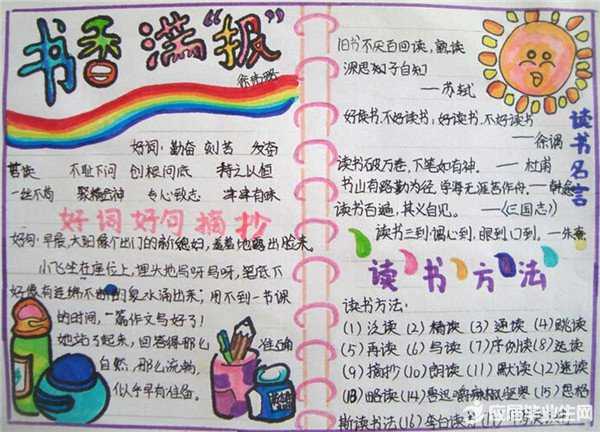 书香满“报”
好词：勤奋 刻苦 发奋
苦读 不耻下问 刨根问底 持之以恒
一丝不苟 聚精会神 专心致志 津津有味
好词好句摘抄
好句：早晨，太阳像刚出门的新媳妇，羞羞地露出脸来。
小飞坐在座位上，埋头地写呀写呀，笔底下
好像有连绵不断的泉水涌出来；用不到一节课
的时间，一篇作文写好了！
她站了起来，回答得那么准确
自然，那么流畅，
似乎早有准备。
旧书不厌百回读，熟读
深思子自知
——苏轼
好读书，不好读书；好读书，不好读书
——徐渭
读书破万卷，下笔如有神。——杜甫
书山有路勤为径，学海无涯苦作舟。——韩愈
读书百遍，其义自见。——《三国志》
读书三到：心到，眼到，口到。——朱熹
读书名言
读书方法
读书方法：
(1)泛读 (2)精读 (3)通读 (4)跳读
(5)再读 (6)写读 (7)序例读 (8)选读
(9)摘抄 (10)朗读 (11)默读 (12)速读
(13)略读 (14)鲁迅嚼辣椒驱寒 (15)思格
斯读书法 (16)李白读书 (17)
应届毕业生网